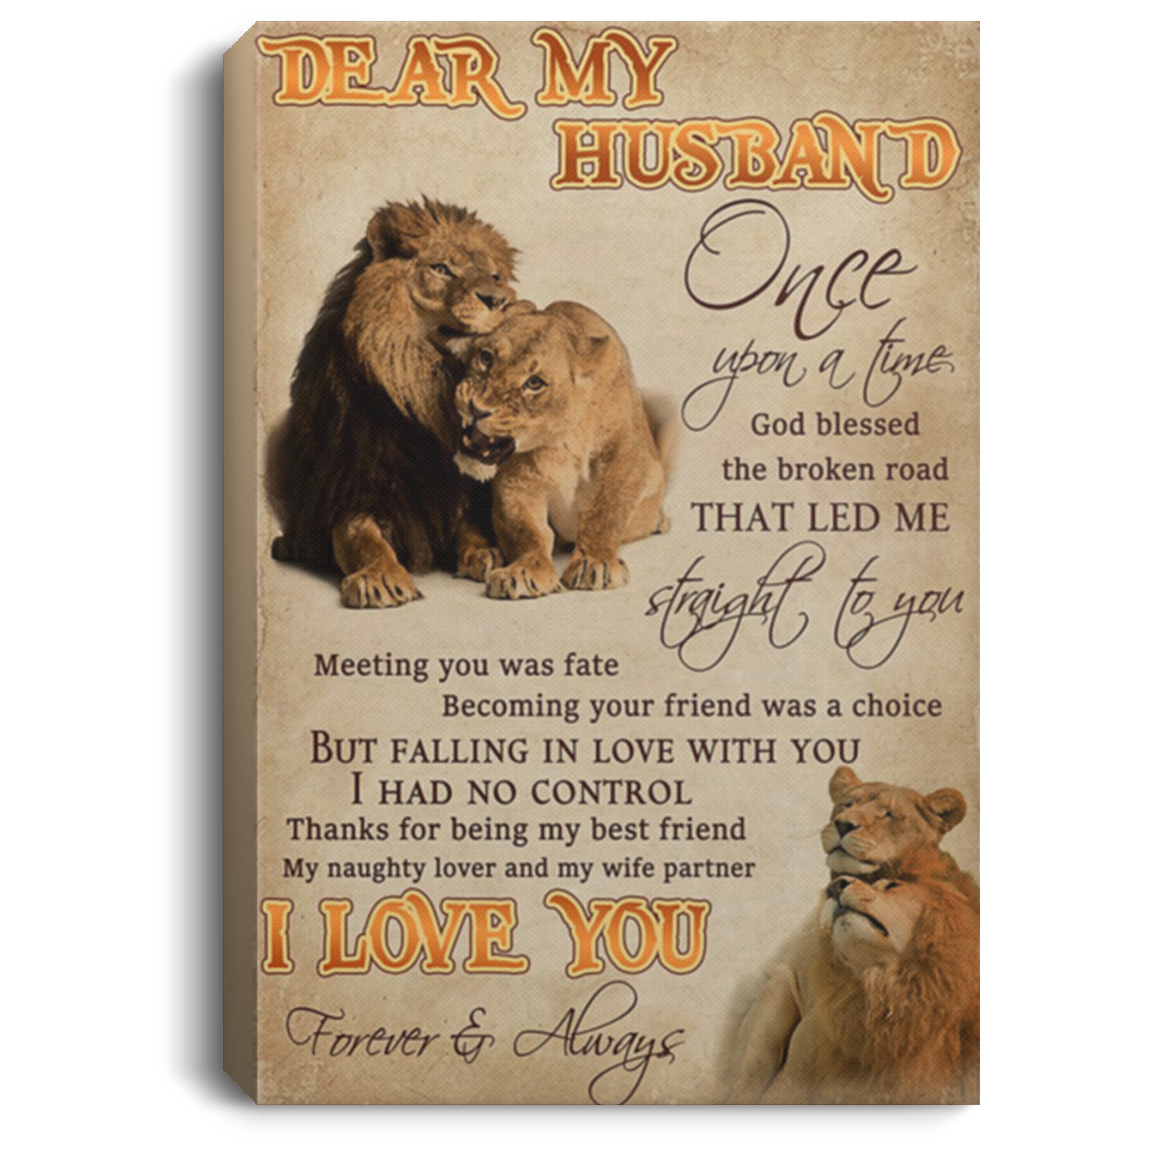 DEAR MY
HUSBAND
Once
upon a time
God blessed
the broken road
THAT LED ME
straight to you
Meeting you was fate
Becoming your friend was a choice
BUT FALLING IN LOVE WITH YOU
I HAD NO CONTROL
Thanks for being my best friend
My naughty lover and my wife partner
I LOVE YOU
Forever & Always